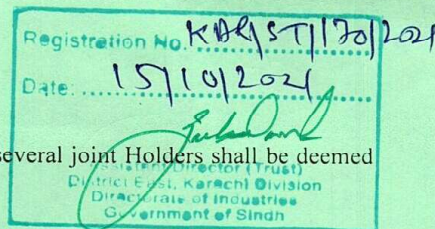 Registration No. KAR/ST/170/2021
Date: 15/10/2021
several joint Holders shall be deemed
Assistant Director (Trust)
District East, Karachi Division
Directorate of Industries
Government of Sindh